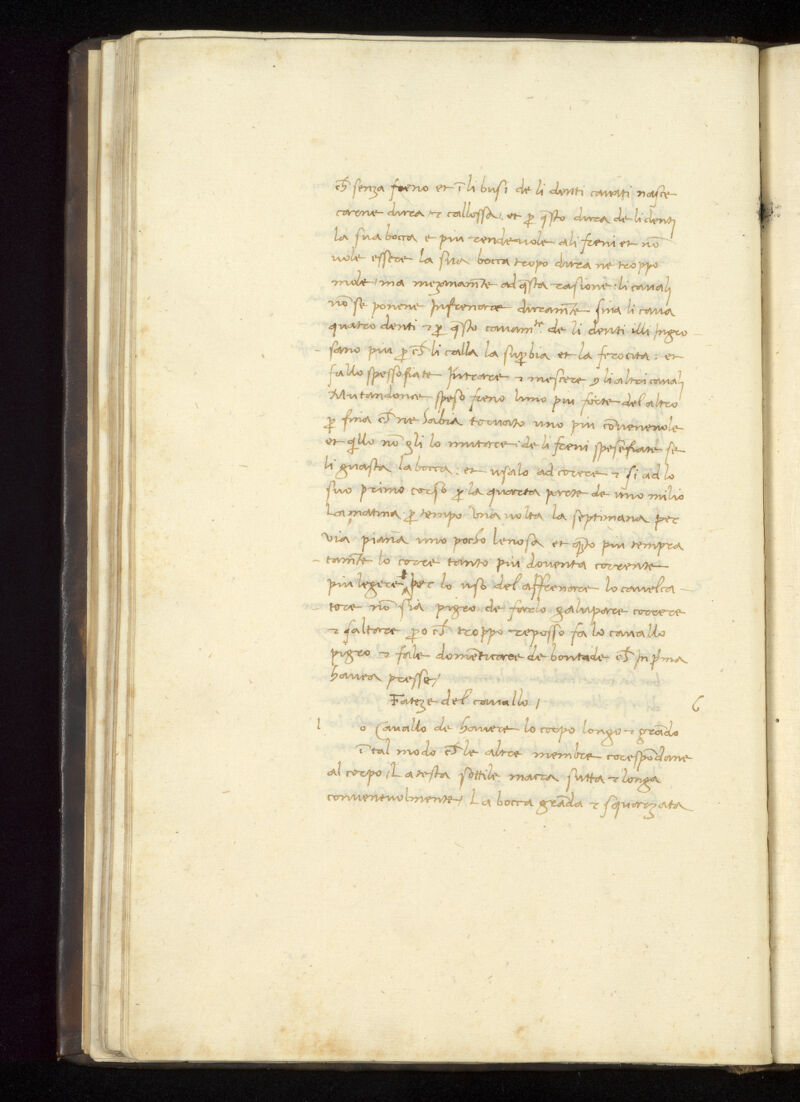 ch̄ senza freno et ī li busi de li denti cauati nasce
carne dura et callossa, et p̱ q̄sto dura de li denti
la sua bocca e piu rendeuole ali freni et nō
uole essere la sua bocca tropo dura ne troppo
mole, ma mezanam̄te ad q̄sta rasione, li cauali
nō se ponene Infrenare duram̄te sina li caua
quatro denti et p̱ q̄sto cauam̄te de li denti illi Ingro
sano piu p̱ ch̄ li calla la sup̱bia et la ferocita: et
fallo spesso fiate Intrare et mescere y li altri cauali
Mutandonce speso freno luno piu forte del altro
p̱ fina ch̄ ne habia trouato uno piu cōueneuole
et q̄llo nō gli lo mutare: de li freni spese fiate se
li guasta la bocca: et usalo ad corere et si ad lo
suo primo corso p̱ la quarta parte de uno milio
La matina p̱ tempo una uolta la septimana per
uia piana uno pocho lenosa et q̄to piu tempra
tam̄te lo corre tanto piu douenta corrente
piu legere et per lo uso del affrenare lo caualca
tore nō sia pigro de farlo galupare correre
et saltare p̱o ch̄ troppo reposso fa lo cauallo
pigro et fale domēticare de bontade ch̄ In p̄ma
hauea presse/
Fateze del cauallo / 6
l o Cauallo de hauere lo corpo longo et grādo
ī tal modo ch̄ le altre membre corespōdane
al corpo / La testa sottile macra sutta et longa
conueneuolmente / La bocca grāda et squarzata